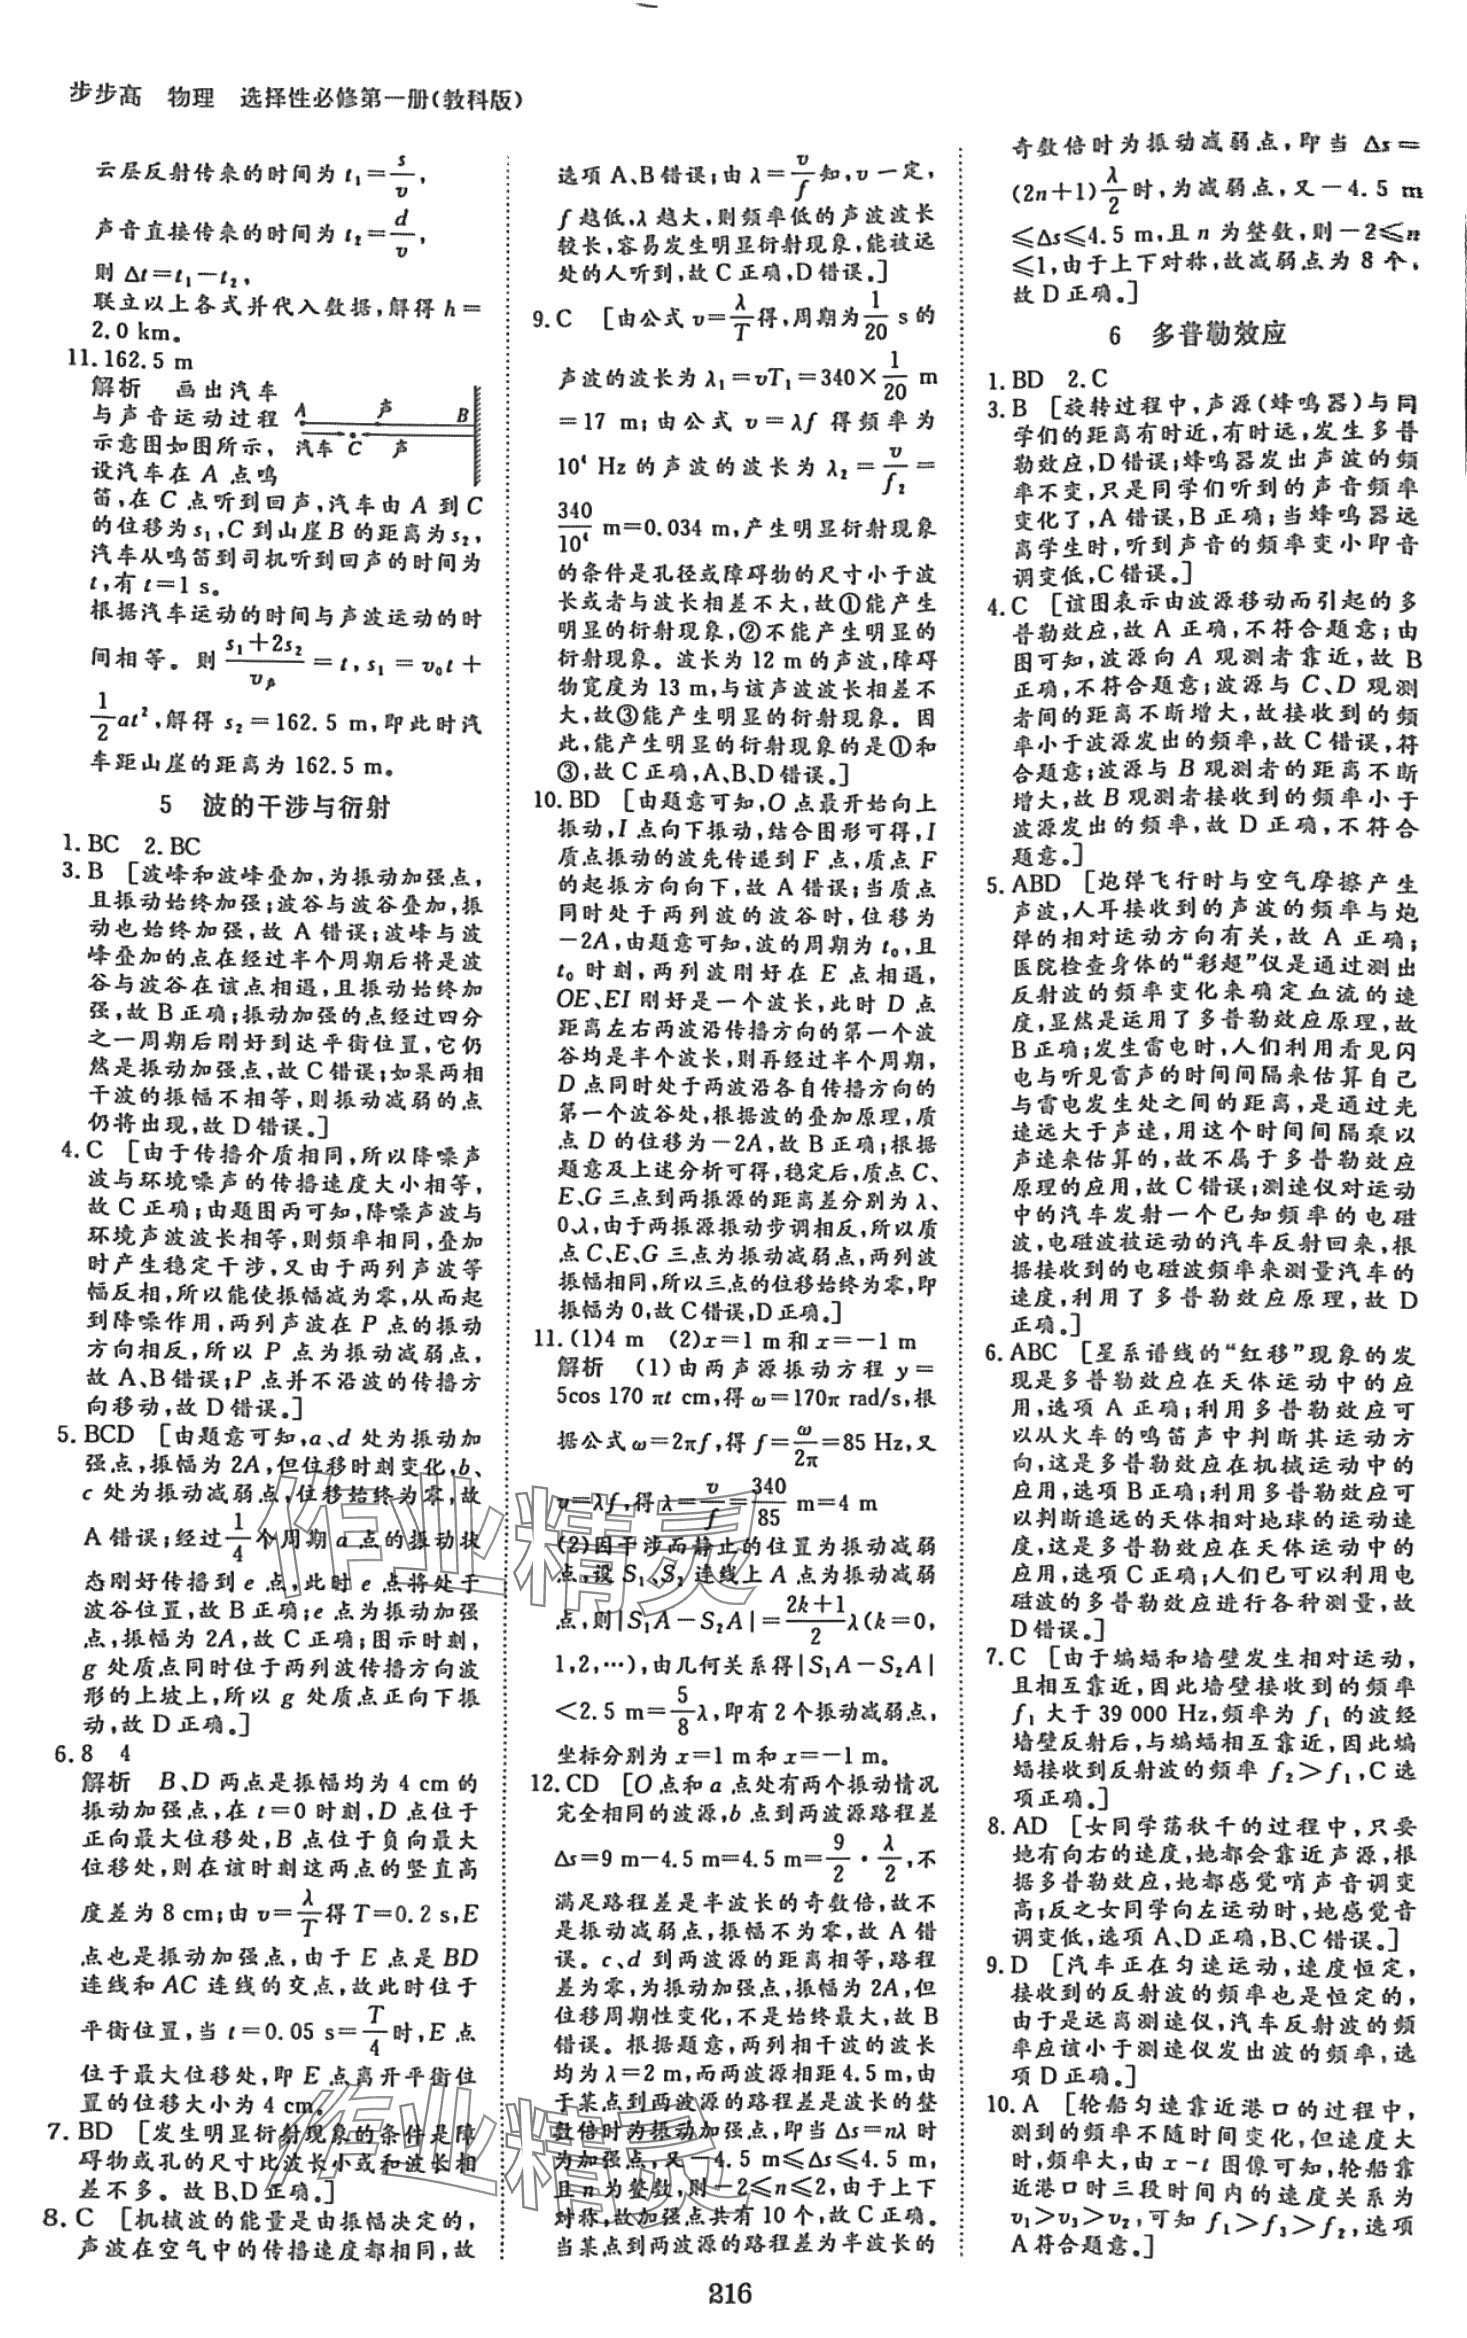 步步高 物理 选择性必修第一册(教科版)
云层反射传来的时间为 t₁=s/v,
声音直接传来的时间为 t₂=d/v,
则 Δt=t₁-t₂,
联立以上各式并代入数据,解得 h=
2.0 km。
11.162.5 m
解析 画出汽车
与声音运动过程
示意图如图所示,
设汽车在 A 点鸣
A 声 B
汽车 C 声
笛,在 C 点听到回声,汽车由 A 到 C
的位移为 s₁,C 到山崖 B 的距离为 s₂,
汽车从鸣笛到司机听到回声的时间为
t,有 t=1 s。
根据汽车运动的时间与声波运动的时
间相等。则 (s₁+2s₂)/v声=t,s₁=v₀t+
1/2at²,解得 s₂=162.5 m,即此时汽
车距山崖的距离为 162.5 m。
5 波的干涉与衍射
1.BC 2.BC
3.B [波峰和波峰叠加,为振动加强点,
且振动始终加强;波谷与波谷叠加,振
动也始终加强,故 A 错误;波峰与波
峰叠加的点在经过半个周期后将是波
谷与波谷在该点相遇,且振动始终加
强,故 B 正确;振动加强的点经过四分
之一周期后刚好到达平衡位置,它仍
然是振动加强点,故 C 错误;如果两相
干波的振幅不相等,则振动减弱的点
仍将出现,故 D 错误。]
4.C [由于传播介质相同,所以降噪声
波与环境噪声的传播速度大小相等,
故 C 正确;由题图丙可知,降噪声波与
环境声波波长相等,则频率相同,叠加
时产生稳定干涉,又由于两列声波等
幅反相,所以能使振幅减为零,从而起
到降噪作用,两列声波在 P 点的振动
方向相反,所以 P 点为振动减弱点,
故 A、B 错误;P 点并不沿波的传播方
向移动,故 D 错误。]
5.BCD [由题意可知,a、d 处为振动加
强点,振幅为 2A,但位移时刻变化,b、
c 处为振动减弱点,位移始终为零,故
A 错误;经过1/4个周期 a 点的振动状
态刚好传播到 e 点,此时 e 点将处于
波谷位置,故 B 正确;e 点为振动加强
点,振幅为 2A,故 C 正确;图示时刻,
g 处质点同时位于两列波传播方向波
形的上坡上,所以 g 处质点正向下振
动,故 D 正确。]
6.8 4
解析 B、D 两点是振幅均为 4 cm 的
振动加强点,在 t=0 时刻,D 点位于
正向最大位移处,B 点位于负向最大
位移处,则在该时刻这两点的竖直高
度差为 8 cm;由 v=λ/T得 T=0.2 s,E
点也是振动加强点,由于 E 点是 BD
连线和 AC 连线的交点,故此时位于
平衡位置,当 t=0.05 s=T/4时,E 点
位于最大位移处,即 E 点离开平衡位
置的位移大小为 4 cm。
7.BD [发生明显衍射现象的条件是障
碍物或孔的尺寸比波长小或和波长相
差不多。故 B、D 正确。]
8.C [机械波的能量是由振幅决定的,
声波在空气中的传播速度都相同,故
选项 A、B 错误;由 λ=v/f知,v 一定,
f 越低,λ 越大,则频率低的声波波长
较长,容易发生明显衍射现象,能被远
处的人听到,故 C 正确,D 错误。]
9.C [由公式 v=λ/T得,周期为1/20 s 的
声波的波长为 λ₁=vT₁=340×1/20 m
=17 m;由公式 v=λf 得频率为
10⁴ Hz 的声波的波长为 λ₂=v/f₂=
340/10⁴ m=0.034 m,产生明显衍射现象
的条件是孔径或障碍物的尺寸小于波
长或者与波长相差不大,故①能产生
明显的衍射现象,②不能产生明显的
衍射现象。波长为 12 m 的声波,障碍
物宽度为 13 m,与该声波波长相差不
大,故③能产生明显的衍射现象。因
此,能产生明显的衍射现象的是①和
③,故 C 正确,A、B、D 错误。]
10.BD [由题意可知,O 点最开始向上
振动,I 点向下振动,结合图形可得,I
质点振动的波先传递到 F 点,质点 F
的起振方向向下,故 A 错误;当质点
同时处于两列波的波谷时,位移为
-2A,由题意可知,波的周期为 t₀,且
t₀ 时刻,两列波刚好在 E 点相遇,
OE、EI 刚好是一个波长,此时 D 点
距离左右两波沿传播方向的第一个波
谷均是半个波长,则再经过半个周期,
D 点同时处于两波沿各自传播方向的
第一个波谷处,根据波的叠加原理,质
点 D 的位移为-2A,故 B 正确;根据
题意及上述分析可得,稳定后,质点 C、
E、G 三点到两振源的距离差分别为 λ、
0、λ,由于两振源振动步调相反,所以质
点 C、E、G 三点为振动减弱点,两列波
振幅相同,所以三点的位移始终为零,即
振幅为 0,故 C 错误,D 正确。]
11.(1)4 m (2)x=1 m 和 x=-1 m
解析 (1)由两声源振动方程 y=
5cos 170 πt cm,得 ω=170π rad/s,根
据公式 ω=2πf,得 f=ω/2π=85 Hz,又
v=λf,得 λ=v/f=340/85 m=4 m
(2)因干涉而静止的位置为振动减弱
点,设 S₁、S₂ 连线上 A 点为振动减弱
点,则|S₁A-S₂A|=(2k+1)/2λ(k=0,
1,2,…),由几何关系得|S₁A-S₂A|
<2.5 m=5/8λ,即有 2 个振动减弱点,
坐标分别为 x=1 m 和 x=-1 m。
12.CD [O 点和 a 点处有两个振动情况
完全相同的波源,b 点到两波源路程差
Δs=9 m-4.5 m=4.5 m=9/2·λ/2,不
满足路程差是半波长的奇数倍,故不
是振动减弱点,振幅不为零,故 A 错
误。c、d 到两波源的距离相等,路程
差为零,为振动加强点,振幅为 2A,但
位移周期性变化,不是始终最大,故 B
错误。根据题意,两列相干波的波长
均为 λ=2 m,而两波源相距 4.5 m,由
于某点到两波源的路程差是波长的整
数倍时为振动加强点,即当 Δs=nλ 时
为加强点,又-4.5 m≤Δs≤4.5 m,
且 n 为整数,则-2≤n≤2,由于上下
对称,故加强点共有 10 个,故 C 正确。
当某点到两波源的路程差为半波长的
奇数倍时为振动减弱点,即当 Δs=
(2n+1)λ/2时,为减弱点,又-4.5 m
≤Δs≤4.5 m,且 n 为整数,则-2≤n
≤1,由于上下对称,故减弱点为 8 个,
故 D 正确。]
6 多普勒效应
1.BD 2.C
3.B [旋转过程中,声源(蜂鸣器)与同
学们的距离有时近,有时远,发生多普
勒效应,D 错误;蜂鸣器发出声波的频
率不变,只是同学们听到的声音频率
变化了,A 错误,B 正确;当蜂鸣器远
离学生时,听到声音的频率变小即音
调变低,C 错误。]
4.C [该图表示由波源移动而引起的多
普勒效应,故 A 正确,不符合题意;由
图可知,波源向 A 观测者靠近,故 B
正确,不符合题意;波源与 C、D 观测
者间的距离不断增大,故接收到的频
率小于波源发出的频率,故 C 错误,符
合题意;波源与 B 观测者的距离不断
增大,故 B 观测者接收到的频率小于
波源发出的频率,故 D 正确,不符合
题意。]
5.ABD [炮弹飞行时与空气摩擦产生
声波,人耳接收到的声波的频率与炮
弹的相对运动方向有关,故 A 正确;
医院检查身体的“彩超”仪是通过测出
反射波的频率变化来确定血流的速
度,显然是运用了多普勒效应原理,故
B 正确;发生雷电时,人们利用看见闪
电与听见雷声的时间间隔来估算自己
与雷电发生处之间的距离,是通过光
速远大于声速,用这个时间间隔乘以
声速来估算的,故不属于多普勒效应
原理的应用,故 C 错误;测速仪对运动
中的汽车发射一个已知频率的电磁
波,电磁波被运动的汽车反射回来,根
据接收到的电磁波频率来测量汽车的
速度,利用了多普勒效应原理,故 D
正确。]
6.ABC [星系谱线的“红移”现象的发
现是多普勒效应在天体运动中的应
用,选项 A 正确;利用多普勒效应可
以从火车的鸣笛声中判断其运动方
向,这是多普勒效应在机械运动中的
应用,选项 B 正确;利用多普勒效应可
以判断遥远的天体相对地球的运动速
度,这是多普勒效应在天体运动中的
应用,选项 C 正确;人们已可以利用电
磁波的多普勒效应进行各种测量,故
D 错误。]
7.C [由于蝙蝠和墙壁发生相对运动,
且相互靠近,因此墙壁接收到的频率
f₁ 大于 39 000 Hz,频率为 f₁ 的波经
墙壁反射后,与蝙蝠相互靠近,因此蝙
蝠接收到反射波的频率 f₂>f₁,C 选
项正确。]
8.AD [女同学荡秋千的过程中,只要
她有向右的速度,她都会靠近声源,根
据多普勒效应,她都感觉哨声音调变
高;反之女同学向左运动时,她感觉音
调变低,选项 A、D 正确,B、C 错误。]
9.D [汽车正在匀速运动,速度恒定,
接收到的反射波的频率也是恒定的,
由于是远离测速仪,汽车反射波的频
率应该小于测速仪发出波的频率,选
项 D 正确。]
10.A [轮船匀速靠近港口的过程中,
测到的频率不随时间变化,但速度大
时,频率大,由 x-t 图像可知,轮船靠
近港口时三段时间内的速度关系为
v₁>v₃>v₂,可知 f₁>f₃>f₂,选项
A 符合题意。]
作业精灵
作业精灵
216